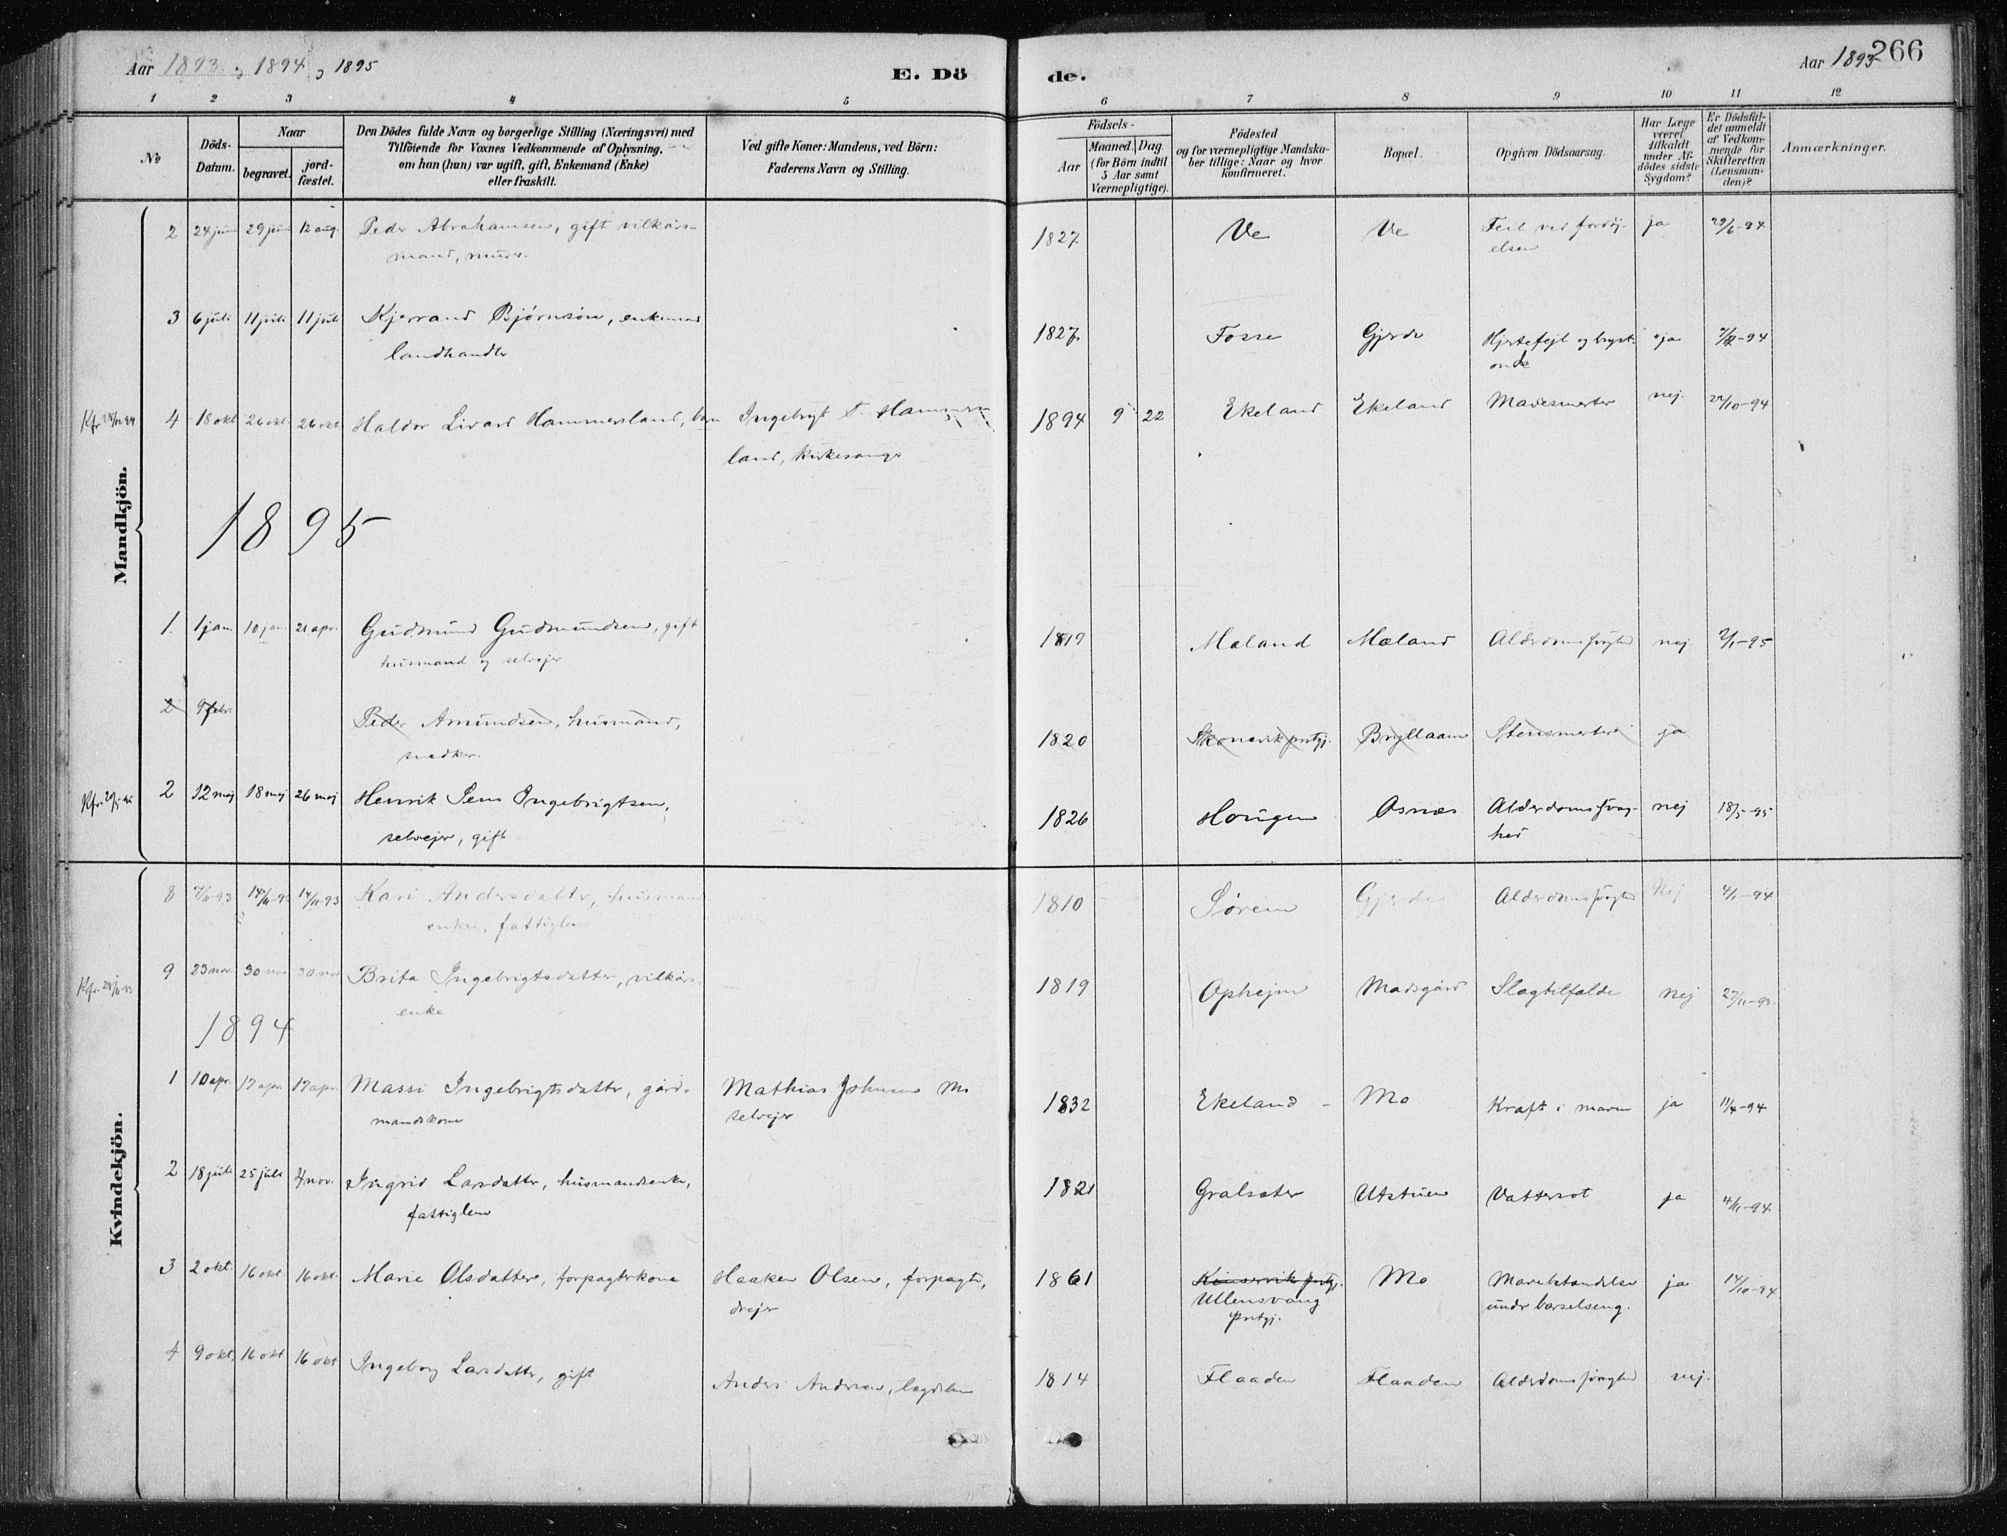 Aar 1893, 1894, 1895
E. Dö
de.
Aar 1895
266
1 2 3 4 5 6 7 8 9 10 11 12
No
Döds-
Datum.
Naar
begravet.
jord-
fæstet.
Den Dödes fulde Navn og borgerlige Stilling (Næringsvei) med
Tilföiende for Voxnes Vedkommende af Oplysning,
om han (hun) var ugift, gift, Enkemand (Enke)
eller fraskilt.
Ved gifte Koner: Mandens, ved Börn:
Faderens Navn og Stilling.
Födsels-
Aar
Maaned. Dag.
(for Börn indtil
5 Aar samt
Værnepligtige).
Födested
og for værnepligtige Mandska-
ber tillige: Naar og hvor
Konfirmeret.
Bopæl.
Opgiven Dödsaarsag.
Har Læge
været
tilkaldt
under Af-
dödes sidste
Sygdom?
Er Dödsfal-
det anmeldt
af Vedkom-
mende for
Skifteretten
(Lensman-
den)?
Anmærkninger.
Mandkjön.
2 24 juni 29 juni 12 aug. Peder Abrahamsen, gift vilkårs-
mand, murer.
1827 Ve Ve Feil ved fordøj- ja 29/6-94
elsen
3 6 juli 11 juli 11 juli Kjerrand Bjørnsøn, enkemand
landhandler
1827 Fosse Gjerde Hjertefejl og bryst- ja
onde
4 18 okt 26 okt 26 okt Haldor Livard Hammersland, barn Ingebrigt T. Hammers-
land, kirkesanger
1894 9 22 Ekeland Ekeland Mavesmerter nej.
1895
1. 1 jan. 10 jan. 21 apr. Gudmund Gudmundsen, gift
husmand og selvejer
1819 Mæland Mæland Alderdomssvaghed nej 2/1-95
2 9 febr. Peder Amundsen, husmand,
snedker.
1820 Skonevik prstgj. Bryllaam Stensmerter ja
2 12 maj 18 maj 26 maj Henrik Jens Ingebrigtsen,
selvejer, gift
1826 Hougen Osnæs Alderdomssvag- nej 18/5-95
hed
Kvindekjön.
8 14/11-93 14/11-93 Kari Andersdatter, husmand
enke, fattiglem
1810 Søreim Gjerde Alderdomssvaghed Nej 4/1-94
9 23 nov. 30 nov 30 nov Brita Ingebrigtsdatter, vilkårs-
enke
1819 Ophejm Madsgård Slagtilfælde Nej 27/11-93.
1894
1 10 apr. 17 apr. 17 apr. Massi Ingebrigtsdatter, gård-
mandskone
Mathias Johnsen Mo
selvejer
1832 Ekeland Mo Kræft i maven ja 11/4-94
2 18 juli 25 juli 4 nov. Ingrid Larsdatter, husmandsenke,
fattiglem
1821 Gralsæter Utstuen Vattersot ja 4/11-94
3 2 okt. 16 okt 16 okt. Marie Olsdatter, forpagterkone Haaken Olsen, forpagter,
drejer
1861 Kinservik prstgj. Mo Marvbetændelse ja 14/10-94
Ullensvang under barselseng.
prstgj.
4 9 okt. 16 okt 16 okt Ingeborg Larsdatter, gift
Anders Andersen, lægdslem
1814 Flaaden Flaaden Alderdomssvaghed nej.